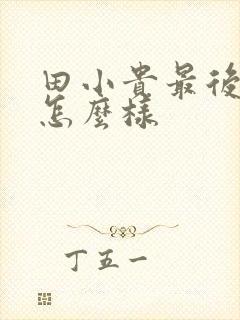 田小貴最後
怎麼樣
丁五一